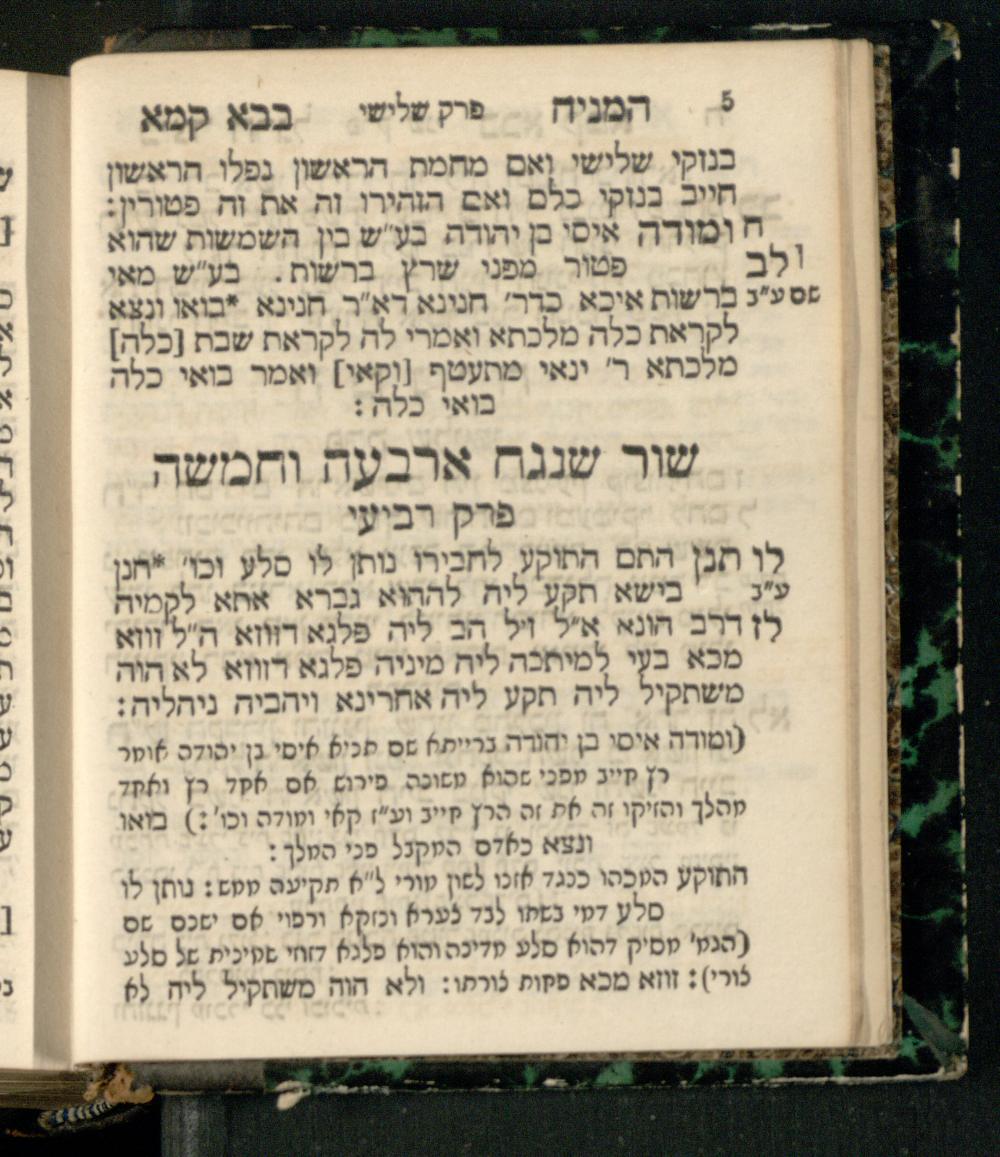 5 המניח פרק שלישי בבא קמא
בנזקי שלישי ואם מחמת הראשון נפלו הראשון
חייב בנזקי כלם ואם הזהירו זה את זה פטורין:
ח ומודה איסי בן יהודה בע״ש בין השמשות שהוא
ו לב פטור מפני שרץ ברשות. בע״ש מאי
שם ע״ב ברשות איכא כדר׳ חנינא דא״ר חנינא *בואו ונצא
לקראת כלה מלכתא ואמרי לה לקראת שבת [כלה]
מלכתא ר׳ ינאי מתעטף [וקאי] ואמר בואי כלה
בואי כלה:
שור שנגח ארבעה וחמשה
פרק רביעי
לו תנן התם התוקע לחבירו נותן לו סלע וכו׳ *חנן
ע״ב בישא תקע ליה לההוא גברא אתא לקמיה
לז דרב הונא א״ל זיל הב ליה פלגא דזוזא ה״ל זוזא
מכא בעי למיתבה ליה מיניה פלגא דזוזא לא הוה
משתקיל ליה תקע ליה אחרינא ויהביה ניהליה:
(ומודה איסי בן יהודה ברייתא שם תניא איסי בן יהודה אומר
רץ חייב מפני שהוא משונה פירוש אם אחד רץ ואחד
מהלך והזיקו זה את זה הרץ חייב וע״ז קאי ומודה וכו׳:) בואו
ונצא כאדם המקבל פני המלך:
התוקע המכהו כנגד אזנו לשון מורי ל״א תקיעה ממש: נותן לו
סלע דמי בשתו לבד צערא ונזקא ורפוי אם ישנם שם
(הגמ׳ מסיק דהוא סלע מדינה והוא פלגא דזוזי שמינית של סלע
צורי): זוזא מכא פחות צורתו: ולא הוה משתקיל ליה לא